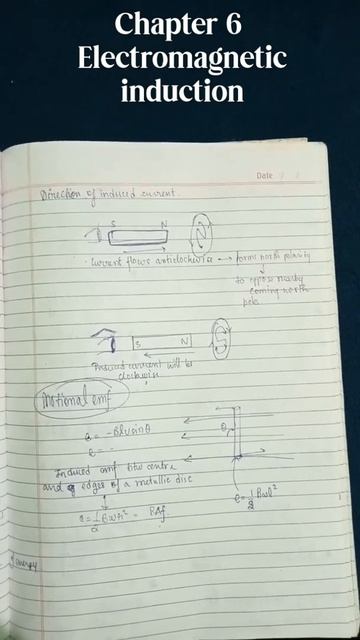 Chapter 6
Electromagnetic
induction
Date
Direction of induced current.
S N
N
Current flows anticlockwise → forms north polarity
to oppose nearby
coming north
pole
S N
S
Induced current will be
clockwise
Motional emf
e = -Blv sinθ
e = -
θ
Induced emf btw centre
and edges of a metallic disc
e = 1/2 Bωl²
e = 1/2 Bωr² = BAf